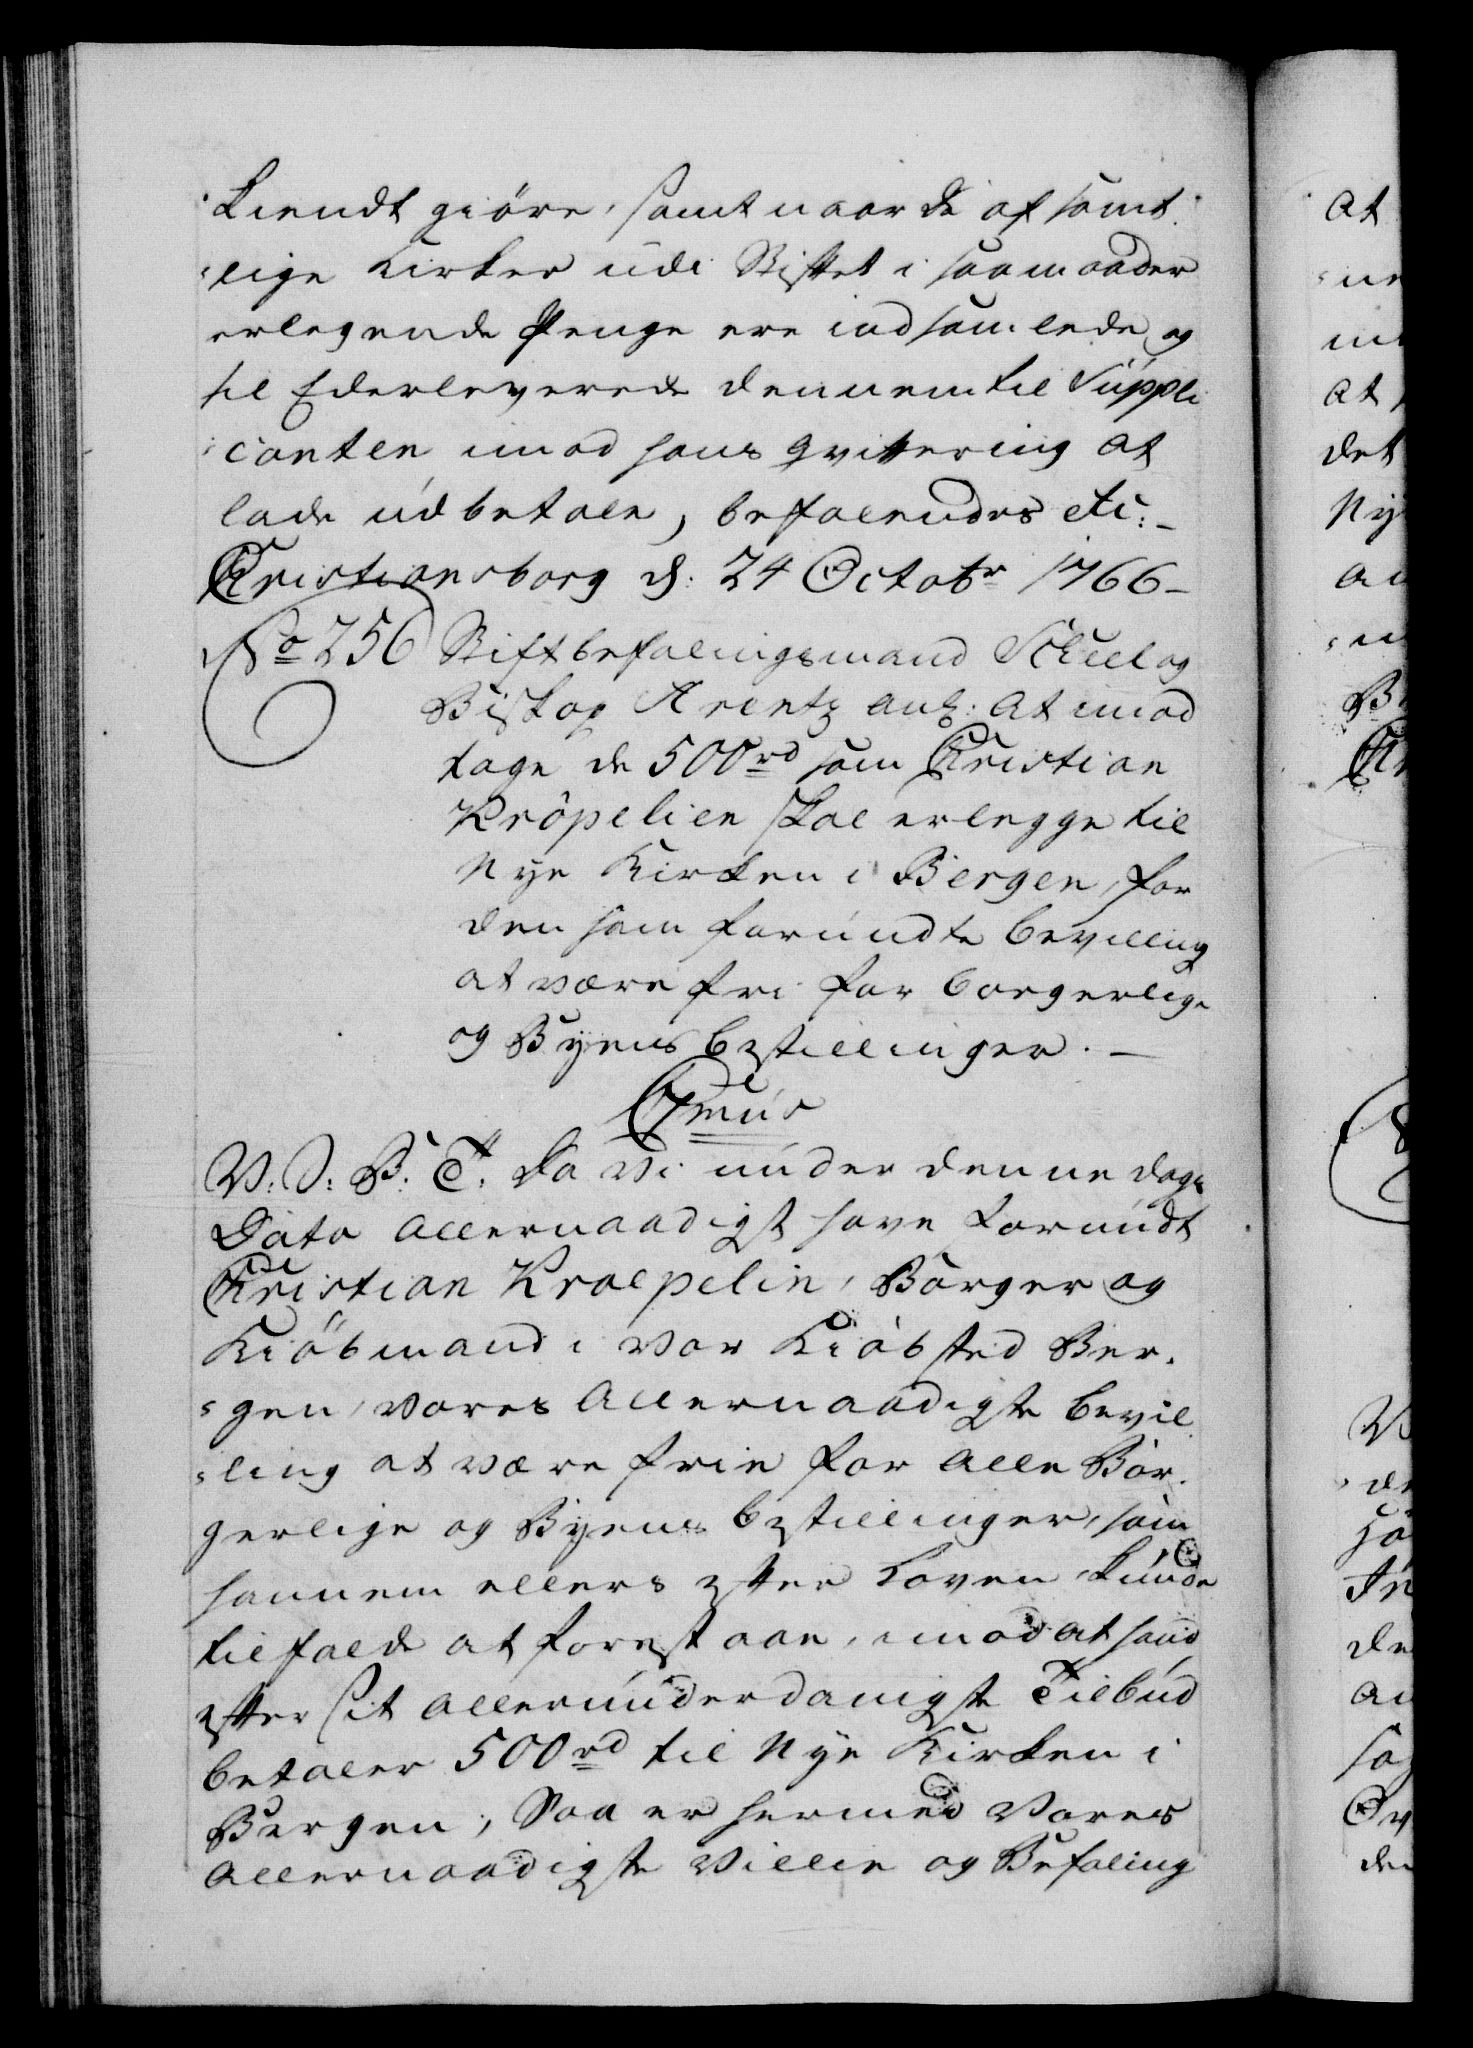 Kiendt giöre, samt naar de af samt¬
¬lige Kirker udi Stiftet i saa maader
erlegende Penge ere indsamlede og
til Eder leverede dennem til Suppli
¬canten imod hans Qvittering at
lade udbetale, befalendes etc:
Christiansborg d: 24 Octobr 1766
No 256 Stiftbefalingsmand Scheel og
Biskop Arentz anl: at imod
tage de 500rd som Christian
Kröpelien skal erlegge til
Nye Kirken i Bergen, for
den ham forundte bevilling
at være fri for borgerlige
og Byens bestillinger.
C7mus
V. S. B. T. Da Vi under denne Dags
Dato allernaadigst have forundt
Christian Kroepelin, Borger og
Kiöbmand i vor Kiöbsted Ber¬
¬gen, vores allernaadigste bevil
¬ling at være frie for alle Bor¬
gerlige og Byens bestillinger, som
hannem ellers efter Loven kunde
tilfalde at forestaae, imod at hand
efter sit allerunderdanigste Tilbud
betaler 500rd til Nye Kirken i
Bergen; Saa er hermed Vores
allernaadigste Villie og Befaling